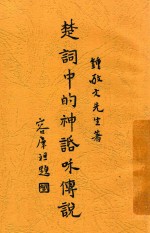 鍾敬文先生著
楚詞中的神話咊傳說
容題